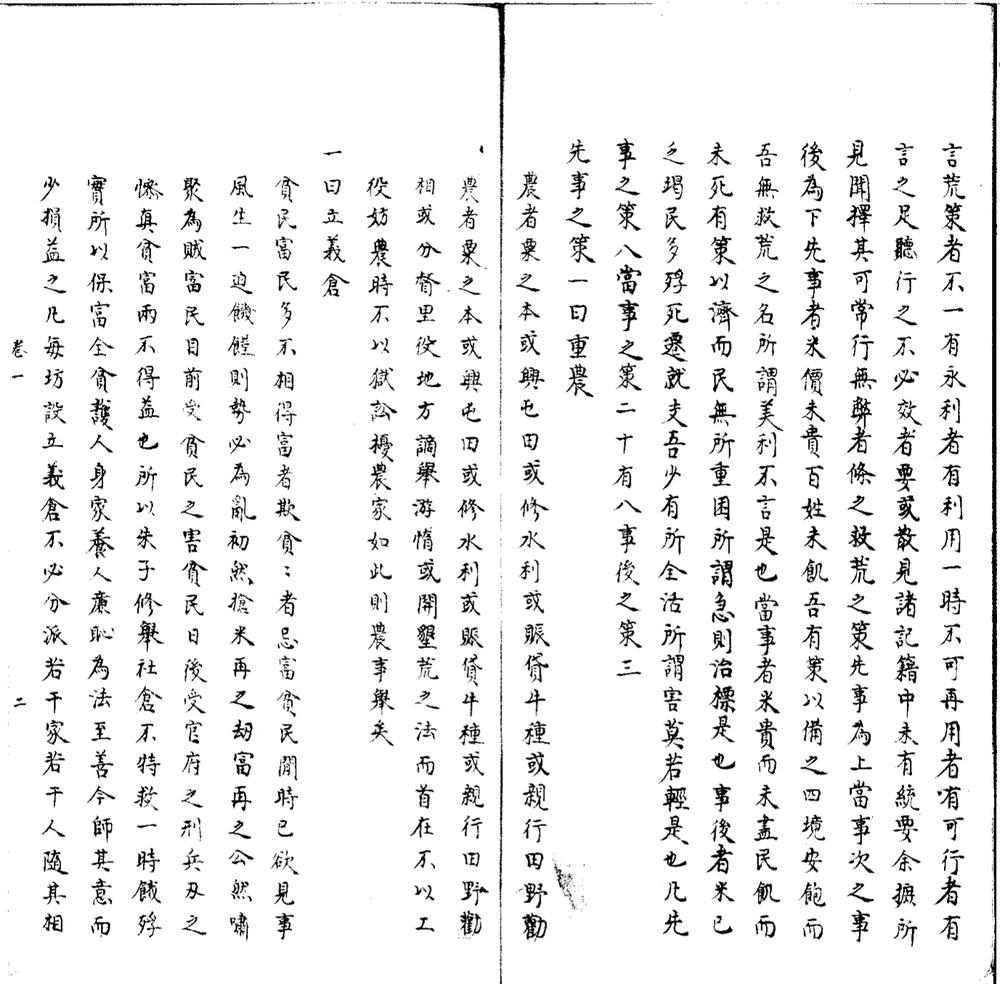 言荒策者不一有永利者有利用一時不可再用者有可行者有
言之足聽行之不必效者要或散見諸記籍中未有統要余摭所
見聞擇其可常行無弊者條之救荒之策先事為上當事次之事
後為下先事者米價未貴百姓未飢吾有策以備之四境安飽而
吾無救荒之名所謂美利不言是也當事者米貴而未盡民飢而
未死有策以濟而民無所重困所謂急則治標是也事後者米已
乏竭民多殍死遷就支吾少有所全活所謂害莫若輕是也凡先
事之策八當事之策二十有八事後之策三
先事之策一曰重農
農者粟之本或興屯田或修水利或賑貸牛種或親行田野勸
農者粟之本或興屯田或修水利或賑貸牛種或親行田野勸
相或分督里役地方謫舉游惰或開墾荒之法而首在不以工
役妨農時不以獄訟擾農家如此則農事舉矣
一曰立義倉
貧民富民多不相得富者欺貧〻者忌富貧民閒時已欲見事
風生一迫饑饉則勢必為亂初然搶米再之劫富再之公然嘯
聚為賊富民目前受貧民之害貧民日後受官府之刑兵刃之
慘真貧富兩不得益也所以朱子修舉社倉不特救一時餓殍
實所以保富全貧護人身家養人廉恥為法至善今師其意而
少損益之凡每坊設立義倉不必分派若干家若干人隨其相
卷一
二